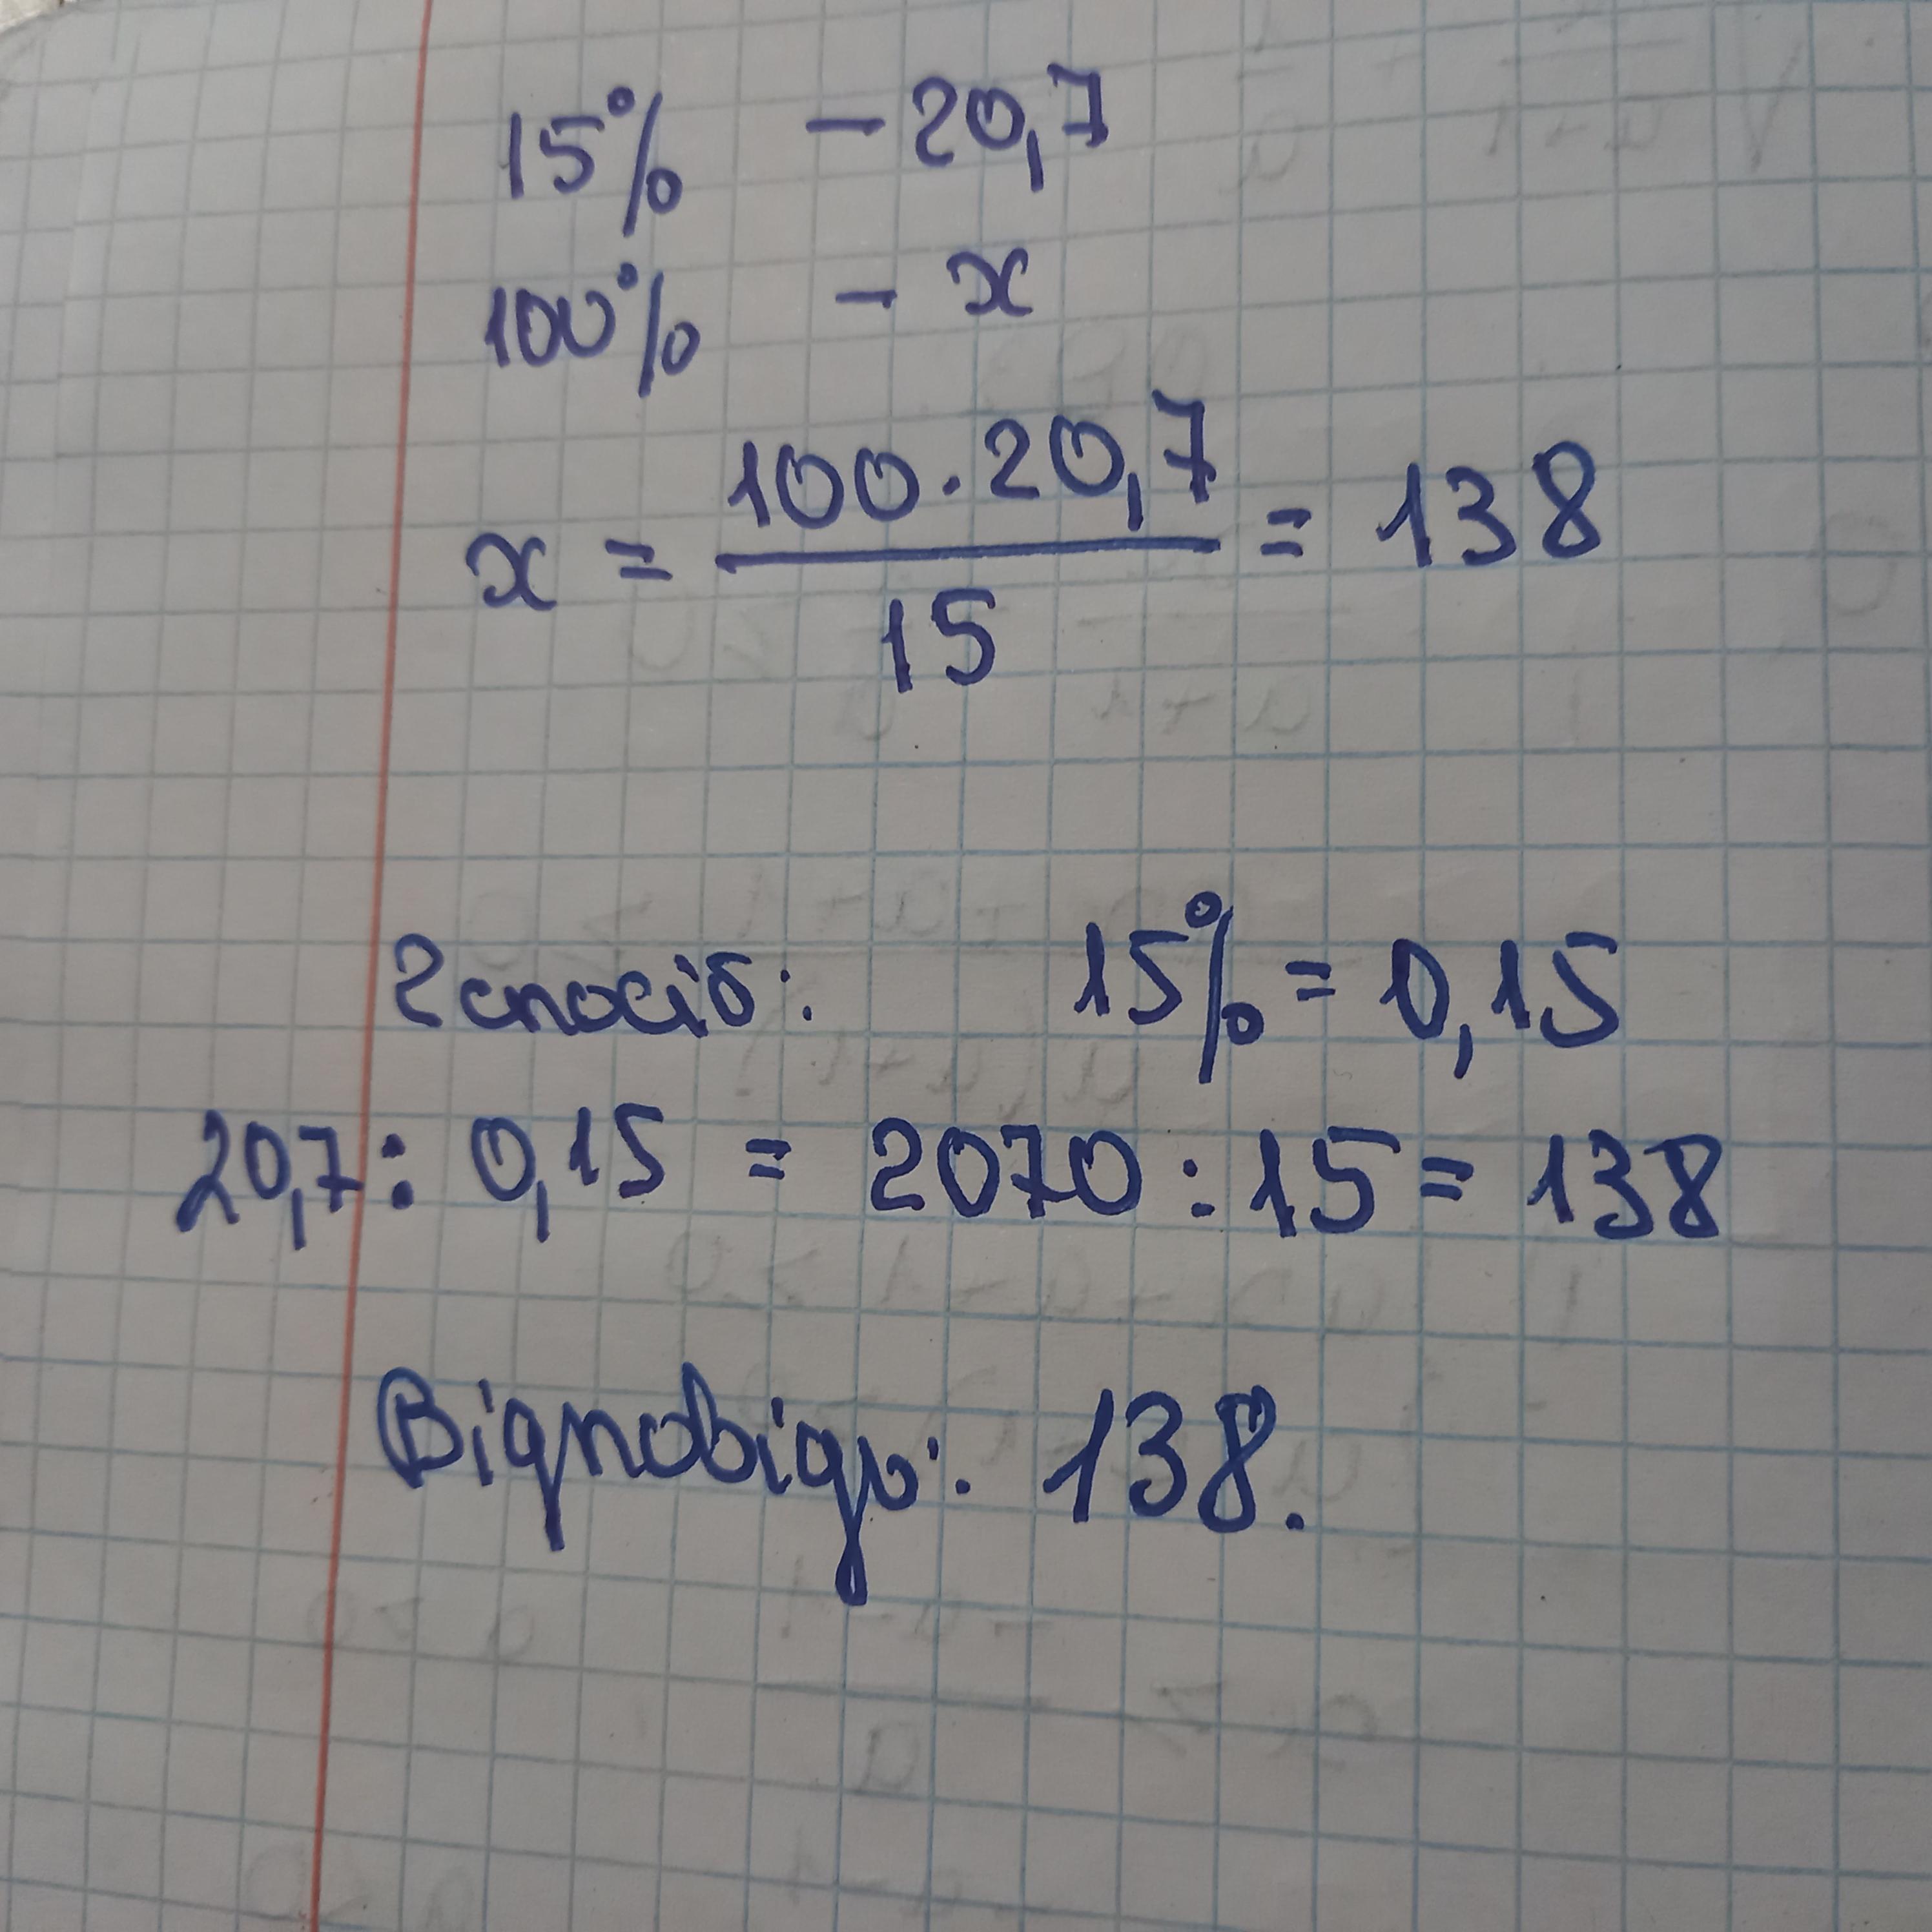 15% - 20,7
100% - x
x = 100 · 20,7 / 15 = 138
2 спосіб: 15% = 0,15
20,7 : 0,15 = 2070 : 15 = 138
Відповідь: 138.